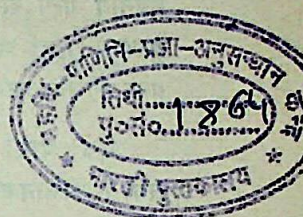 पाणिनि-प्रज्ञा-अनुसन्धान
तिथी..............
पु०सं० 1864
पुस्तकालय